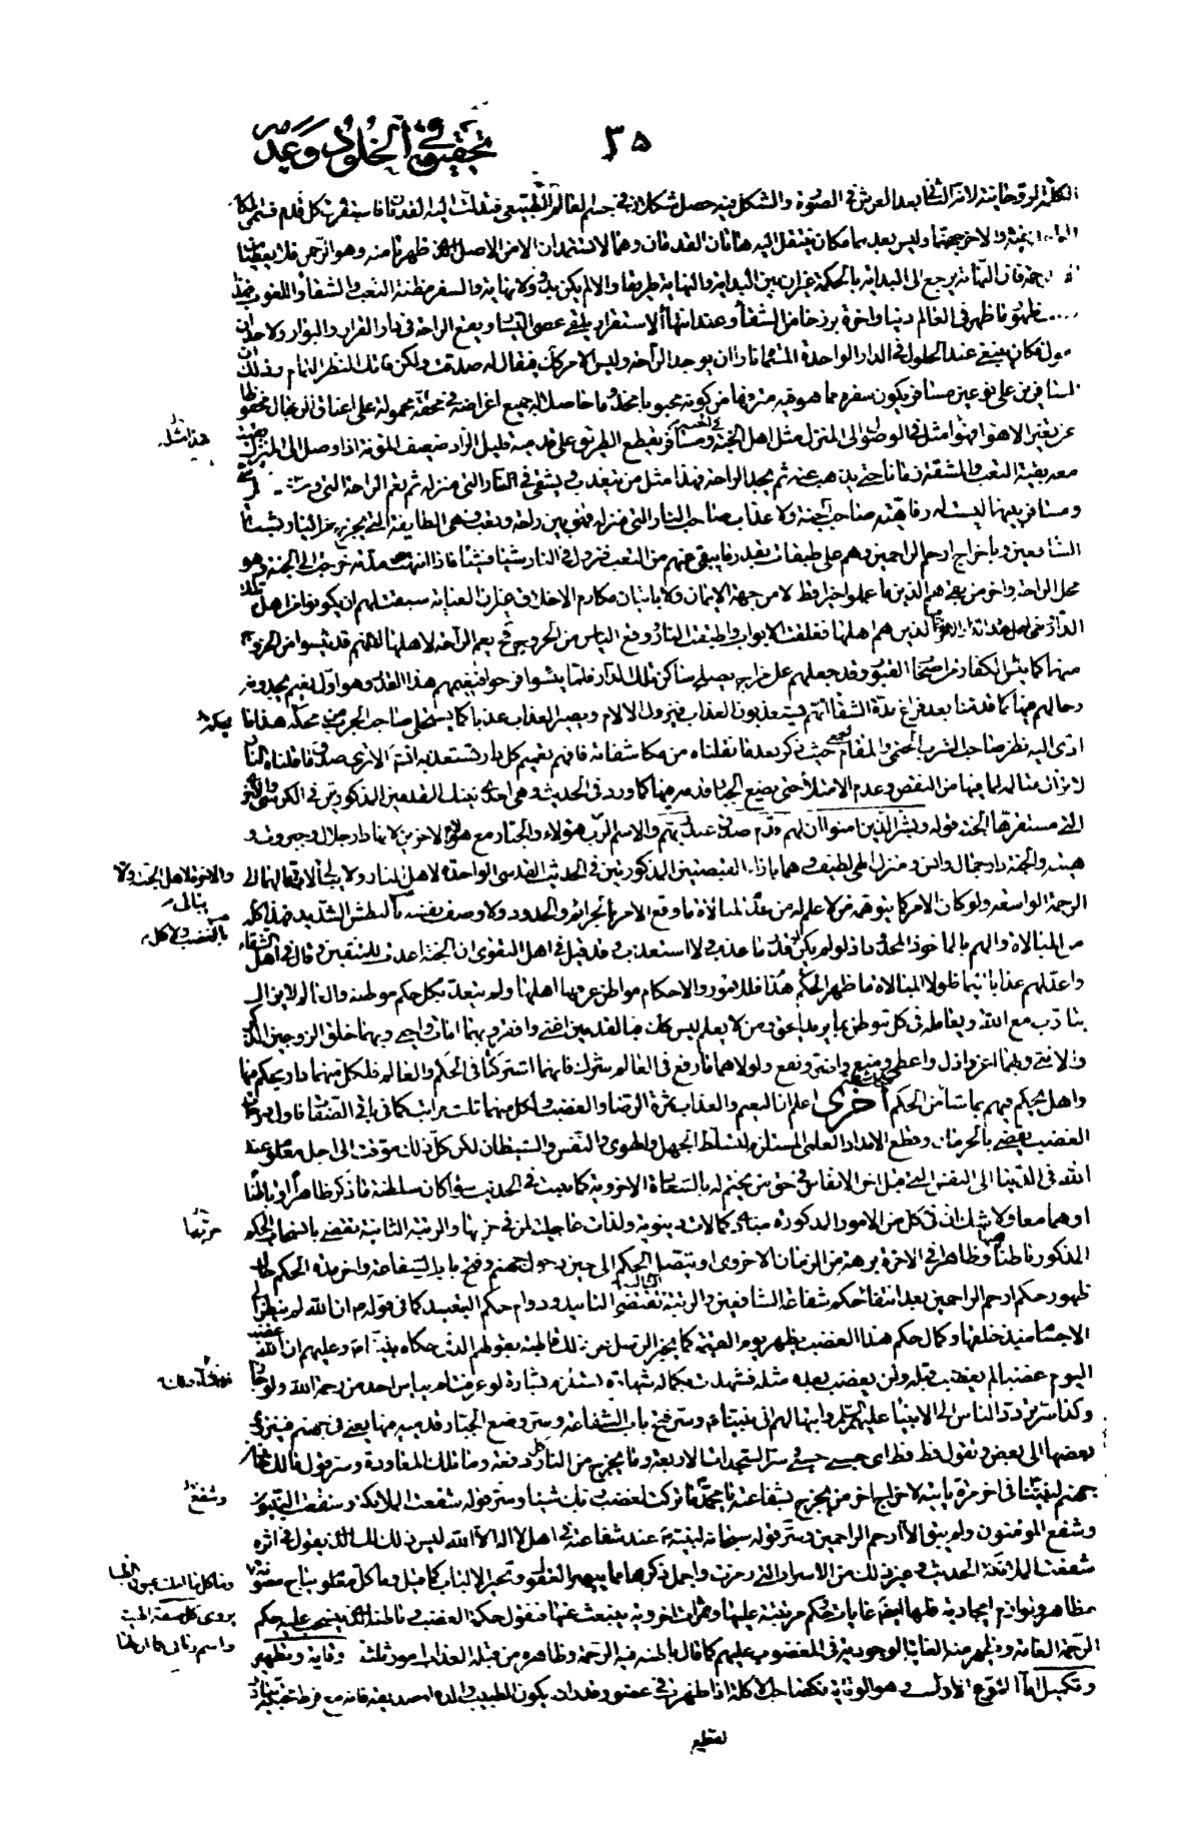 ٣٥
تحقيق في الخلود وعد
الكلمة الروحانية لانه الثاني بعد العرش في الصورة والشكل فيه حصل شكلان في جسم العالم الطبيعي فتدلت اليه القدمان فاستقرت كل قدم في مكان
جهنم والاخر جنة وليس بعدهما مكان ينتقل اليه هاتان القدمان وهما لا يستمدان الا من الاصل الذي ظهرتا منه وهو الرحمن فلا يعطيان
فان النهاية يرجع الى البداية بالحكمة غير ان بين البداية والنهاية طريقا والا لم يكن بدو ولا نهاية والسفر مظنة التعب والشقاء واللغوب فهذا
ظهور ما ظهر في العالم دنيا واخرة وبرزخا من الشقاء وعند انتهاء الاستقرار يلقى عصى التسيار ويقع الراحة في دار القرار والبوار ولاحد ان
يقول فكان ينبغي عند الحلول في الدار الواحدة المسماة نارا ان يوجد الراحة وليس الامر كك فيقال له صدقت ولكن فاتك النظر التام وذلك ان
المسافرين على نوعين مسافر يكون سفره مما هو فيه مترفها من كونه محبوبا مخدوما حاصل له جميع اغراضه في محفة محمولة على اعناق الرجال محفوظا
عن تغير الاهواء فهذا مثله في الوصول الى المنزل مثل اهل الجنة ومسافر يقطع الطريق على قدميه قليل الزاد ضعيف المؤنة اذا وصل الى المنزل بقيت
هذا مثل
معه بقية التعب والمشقة زمانا حتى يذهب عنه ثم يجد الراحة فهذا مثل من يتعذب ويشقى في النار التي منزله ثم يعم الراحة التي وسعت
ومسافر بينهما ليست له رفاهية صاحب الجنة ولا عذاب صاحب النار التي منزله فهو بين راحة وتعب فهي الطايفة التي يخرج من النار بشفاعة
الشافعين وباخراج ارحم الراحمين وهم على طبقات بقدر ما يبقى منهم من التعب فيزول في النار شيئا فشيئا فاذا انتهت مدته خرجت الى الجنة وهو
محل الراحة واخر من بقي هم الذين ما عملوا خيرا قط لا من جهة الايمان ولا باتيان مكارم الاخلاق غير ان العناية سبقت لهم ان يكونوا من اهل تلك
الدار الذين هم اهلها فغلقت الابواب واطبقت النار ووقع الياس من الخروج فح يعم الراحة لاهلها لانهم قد يئسوا من الخروج
منها كما يئس الكفار من اصحاب القبور وقد جعلهم على مزاج يصلح ساكن تلك الدار فلما يئسوا فرحوا فنعيمهم هذا القدر وهو اول نعيم يجدونه
وحالهم فيها كما قدمنا بعد فراغ مدة الشقاء انهم يستعذبون العذاب فيزول الالام ويصير العذاب عذبا كما يستحلي صاحب الجرب من يحكه هذا ما
يحكه
ادى اليه نظر صاحب المشرب الختمي والمقام الجمعي حيث ذكر بعد ما نقلناه من مكاشفاته فافهم نعيم كل دار تستعذبه انش الا ترى صدق ما قلناه النار
لا تزال متالمة لما فيها من النقص وعدم الامتلاء حتى يضع الجبار قدمه فيها كما ورد في الحديث وهي احدى تينك القدمين المذكورتين في الكرسي والاخرى
التي مستقرها الجنة قوله وبشر الذين امنوا ان لهم قدم صدق عند ربهم والاسم الرب مع هؤلاء والجبار مع هؤلاء الاخرين لانها دار جلال وجبروت و
هيبة والجنة دار جمال وانس ومنزل الهي لطيف وهما بازاء القبضتين المذكورتين في الحديث القدسي الواحدة لاهل النار ولا يبالي لان مالهما الى
والاخرى لاهل الجنة ولا
يبالي
الرحمة الواسعة ولو كان الامر كما يتوهمه من لا علم له من عدم المبالاة ما وقع الاخذ بالجرائم والحدود ولا وصف نفسه بالبطش الشديد فهذا كله
بالغضب ولا كل
من المبالاة والهم بالماخوذ المحدود اذ لو لم يكن قدر ما عذب ولا استعذب وقد قيل في اهل التقوى ان الجنة اعدت للمتقين وقال في اهل الشقاء
واعد لهم عذابا اليما فلولا المبالاة ما ظهر هذا الحكم فللامور والاحكام مواطن عرفها اهلها ولم يتعد بكل حكم موطنه والعالم لا يزال
يتادب مع الله ويعامله في كل موطن بما يريد الحق ومن لا يعلم ليس كك فبالقدمين اغنى وافقر وبهما امات واحيى وبهما خلق الزوجين الذكر
والانثى وبهما اعز واذل واعطى ومنع وضر ونفع ولولاهما ما وقع في العالم شرك فانهما اشتركتا في الحكم والعالم فلكل منهما دار يحكم فيها
واهل يحكم فيهم بما شاء من الحكم حكمة عرشية اخرى اعلم ان النعيم والعذاب ثمرة الرضا والغضب ولكل منهما ثلث مراتب كما في باقي الصفات فاول مراتب
الغضب يقضي بالحرمان وقطع الامداد العلمي المستلزم لتسلط الجهل والهوى والنفس والشيطان لكن كل ذلك موقت الى اجل معلوم عند
الله في الدنيا الى النفس الذي قبل اخر الانفاس في حق من يختم له بالسعادة الاخروية كما ثبت في الحديث سواء كان سلطنة ما ذكر ظاهرا او باطنا
او هما معا ولا شك ان في كل من الامور المذكورة مبادي كمالات دنيوية ولذات عاجلة لمن في حزبها والرتبة الثانية تقضي بانسحاب الحكم
حزبها
المذكور باطنا وظاهرا في الاخرة برهة من الزمان الاخروي او يتصل الحكم الى حين دخول جهنم وفتح باب الشفاعة واخر مدة الحكم حال
ظهور حكم ارحم الراحمين بعد انتفاء حكم شفاعة الشافعين والرتبة الثالثة تقتضي التابيد ودوام حكم التبعيد كما في قوله ص ان الله لم ينظر الى
الاجسام منذ خلقها وكمال حكم هذا الغضب يظهر يوم القيمة كما يخبر الرسل عن ذلك قاطبة بقولهم الذي حكاه نبينا ص وعليهم ان الله غضب
اليوم غضبا لم يغضب قبله ولن يغضب بعده مثله فشهدت بكماله شهادة استلزم بشارة لو عرفت لم يياس احد من رحمة الله ولو جاز
وكذا سر تردد الناس الى الانبياء عليهم السلم وانتهائهم الى نبينا ص وسر فتح باب الشفاعة وسر وضع الجبار قدميه فيها يعني في جهنم فينزوي
بعضها الى بعض وتقول قط قط اي حسبي حسبي وسر السجدات الاربعة وما يخرج من النار كل دفعة وما تلك المعاودة وسر قول مالك خازن
جهنم لنبينا في اخر مرة ياتيه لاخراج اخر من يخرج بشفاعته يا محمد ما تركت لغضب ربك شيئا وسر قوله شفعت الملائكة وشفعت النبيون
وشفع
وشفع المؤمنون ولم يبق الا ارحم الراحمين وسر قوله سبحانه لنبيه ص عند شفاعته في اهل لا اله الا الله ليس ذلك لك الذي يقول في اثره
شفعت الملائكة الحديث وغير ذلك من الاسرار التي رمزت واجمل ذكرها مما يبهر العقول وتحير الالباب كما قيل وما كل معلوم يباح مصونه
وما كل ما املت عيون الظبا
يروى
مظاهر ولوازم ايجادية فلها ايضا غايات حكم مرتبة عليها وثمرات اخروية ينبعث عنها فنقول حكمة الغضب في باطنه الذي ينسحب عليه حكم
الرحمة العامة ويظهر منه الغاية الوجودية في المغضوب عليهم كما قال باطنه فيه الرحمة وظاهره من قبله العذاب امور ثلثة وقاية وتطهير
وتكميل اما النوع الاول وهو الوقاية فكصاحب الاكلة اذا ظهرت في عضو
لقطع